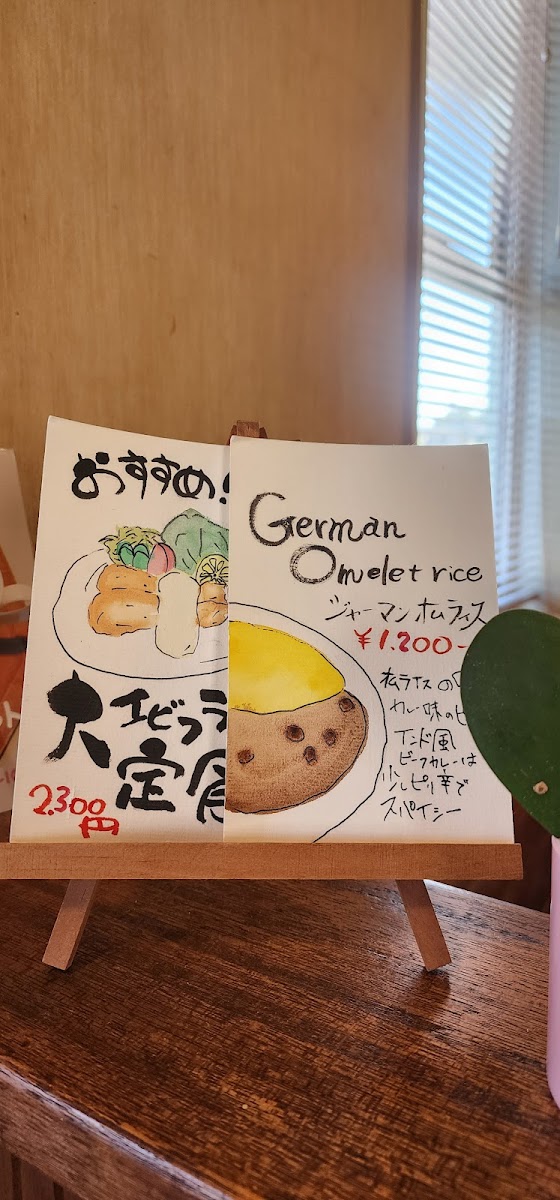 おすすめ!
大エビフラ
定食
2.300
円
German
Omelet rice
ジャーマンオムライス
¥1.200-
オムライスの
カレー味のピ
インド風
ビーフカレーは
少しピリ辛で
スパイシー